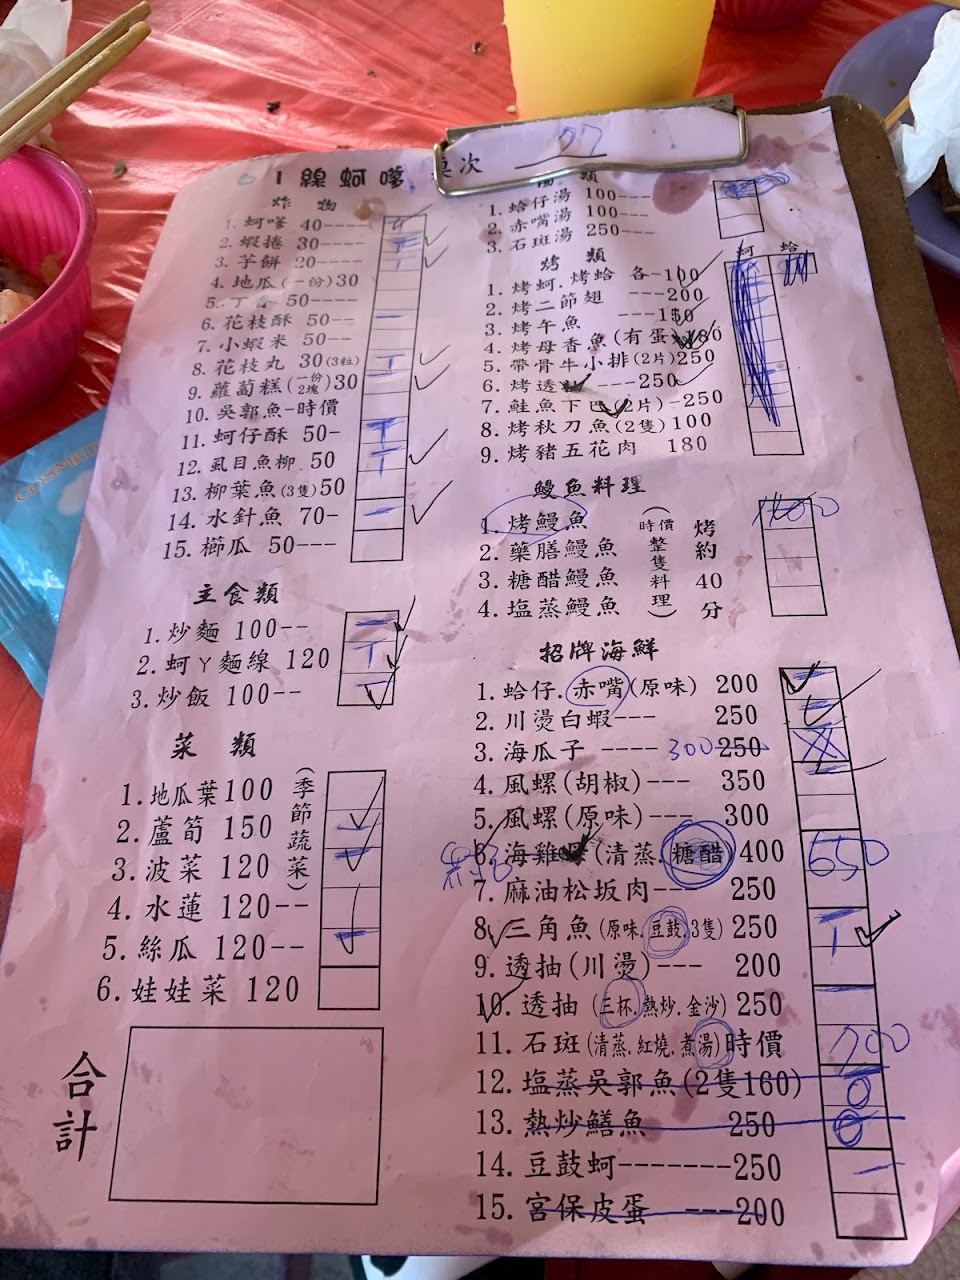 61線蚵嗲
桌次 27
炸物
1. 蚵嗲 40----
2. 蝦捲 30----
3. 芋餅 20----
4. 地瓜(一份)30
5. 丁香 50----
6. 花枝酥 50--
7. 小蝦米 50--
8. 花枝丸 30(3粒)
9. 蘿蔔糕(一份2塊)30
10. 吳郭魚-時價
11. 蚵仔酥 50-
12. 虱目魚柳 50
13. 柳葉魚(3隻)50
14. 水針魚 70-
15. 櫛瓜 50---
主食類
1. 炒麵 100--
2. 蚵ㄚ麵線 120
3. 炒飯 100--
菜類
(季節蔬菜)
1. 地瓜葉100
2. 蘆筍 150
3. 波菜 120
4. 水蓮 120--
5. 絲瓜 120--
6. 娃娃菜 120
合計
湯類
1. 蛤仔湯 100---
2. 赤嘴湯 100---
3. 石斑湯 250---
烤類
蚵 蛤
1. 烤蚵.烤蛤 各-100
2. 烤二節翅 ---200
3. 烤午魚 ---180
4. 烤母香魚(有蛋)180
5. 帶骨牛小排(2片)250
6. 烤透抽 ---250
7. 鮭魚下巴(2片)-250
8. 烤秋刀魚(2隻)100
9. 烤豬五花肉 180
鰻魚料理
1. 烤鰻魚
2. 藥膳鰻魚
3. 糖醋鰻魚
4. 塩蒸鰻魚
(時價整隻料理)
烤約40分
招牌海鮮
1. 蛤仔.赤嘴(原味) 200
2. 川燙白蝦--- 250
3. 海瓜子 ---- 300 250
4. 風螺(胡椒)--- 350
5. 風螺(原味)--- 300
6. 海雞母(清蒸.糖醋)400 650
7. 麻油松坂肉-- 250
8. 三角魚(原味.豆鼓3隻) 250
9. 透抽(川燙)--- 200
10. 透抽(三杯.熱炒.金沙) 250
11. 石斑(清蒸.紅燒.煮湯)時價 700
12. 塩蒸吳郭魚(2隻160)
13. 熱炒鱔魚 250
14. 豆鼓蚵-------250
15. 宮保皮蛋 ---200
COSMED